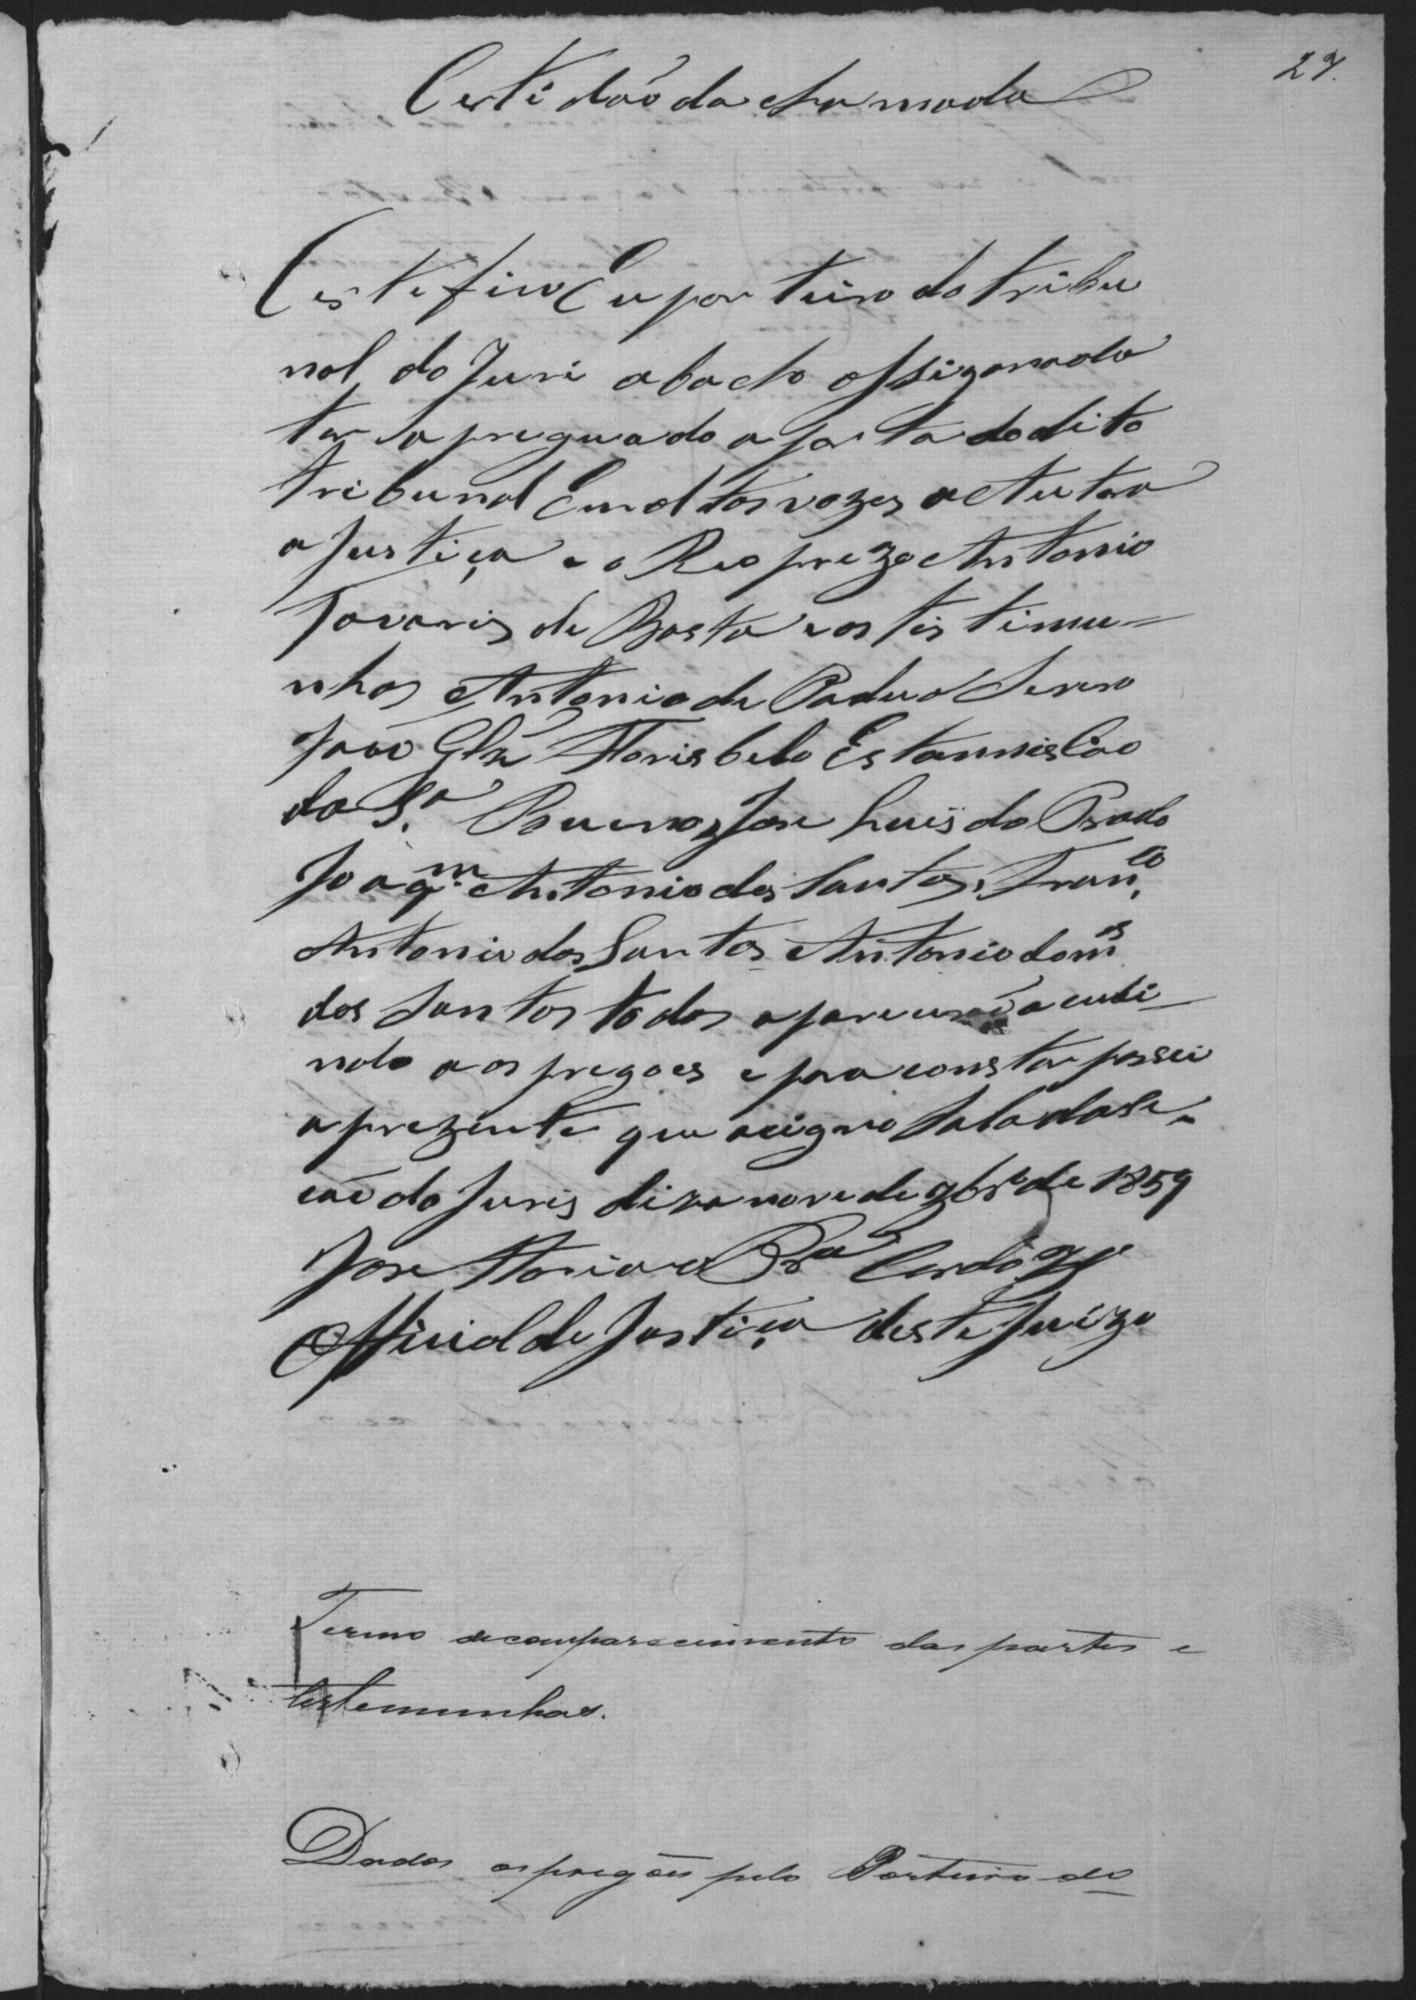 27.
Certidaõ da chamada
Certefico Eu porteiro do tribu
nal do Juri abacho assignado
ter apreguado a porta do dito
tribunal Em altas vozes a Autora
a Justiça e o Reo prezo Antonio
Tavaris de Basto e as tistimu=
nhas Antonio de Padua
João Florisbelo Estannislao
da S.ª Bueno José Luis do Prado
Joaq.m Antonio dos Santos, Fran.co
Antonio dos Santos Antonio dom.os
dos Santos todos a cudi-
ndo aos pregoes e para constar passei
a prezente que acigno Sala da Se-
caõ do Juris dizanove de 9br.o de 1859
José Cardozo
Official de Justiça deste Juizo
Termo de comparecimento das partes e
testemunhas.
Dados os pregões pelo Porteiro do